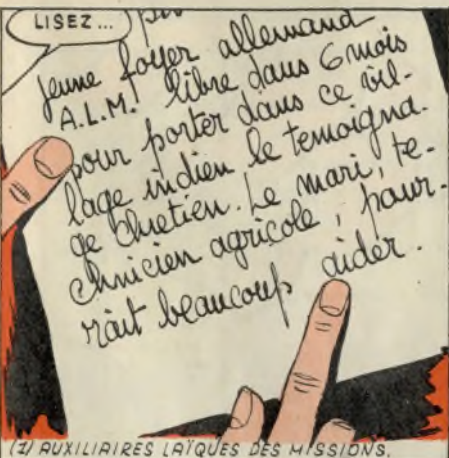 LISEZ...
jeune foyer allemand
A.L.M.' libre dans 6 mois
pour porter dans ce vil-
lage indien le temoigna-
ge chretien. Le mari, te-
chnicien agricole, pour-
rait beaucoup aider.
(1) AUXILIAIRES LAÏQUES DES MISSIONS.